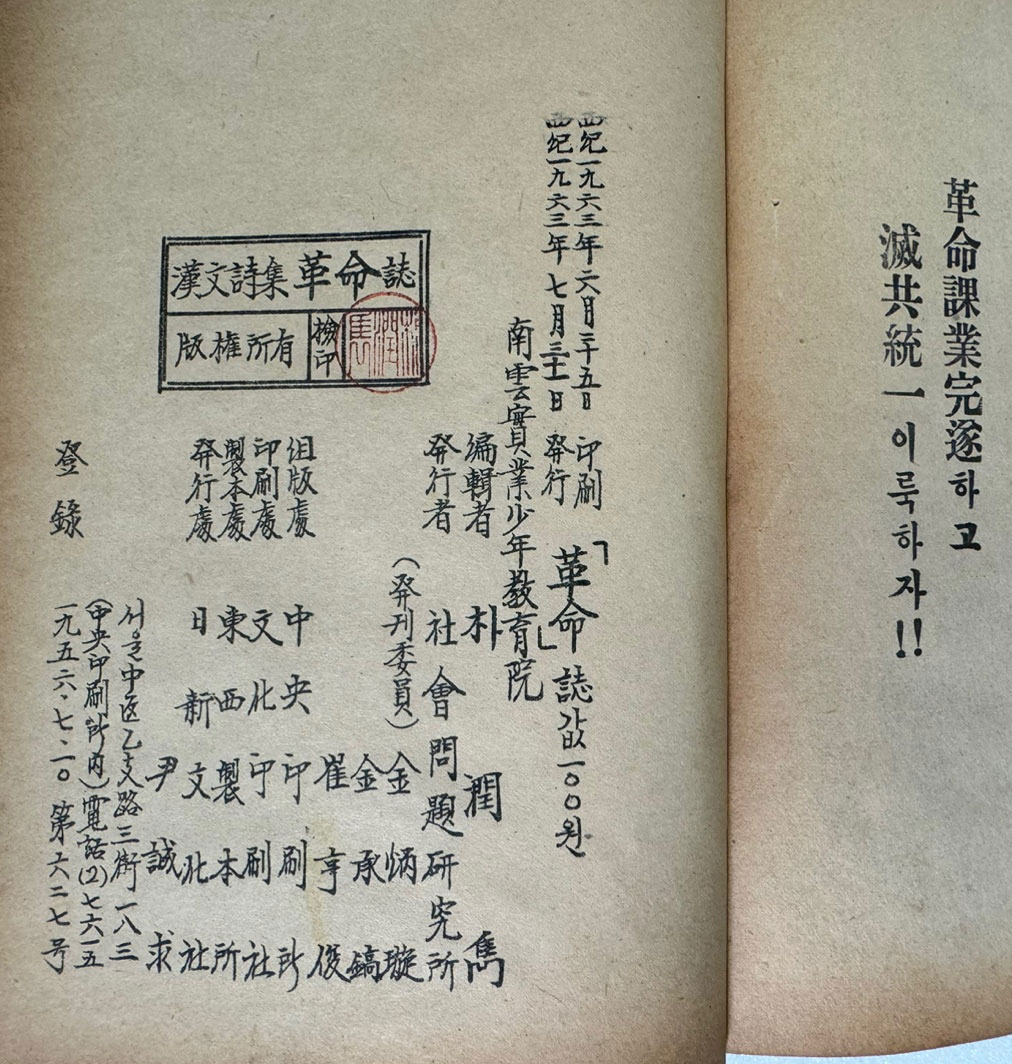 革命課業完遂하고
滅共統一이룩하자!!
西紀一九六三年六月二十五日 印刷
西紀一九六三年七月三十一日 発行
「革命」誌값一〇〇원
南雲實業少年教育院
編輯者 朴潤雋
発行者 社會問題研究所
(発刊委員) 金炳璇
金承鎬
崔亨俊
組版處 中央印刷所
印刷處 文化印刷社
製本處 東西製本所
発行處 日新文化社
尹誠求
서울中区乙支路三街一八三
(中央印刷所内)電話(2)七六一五
登錄 一九五六·七·一〇第六二七号
漢文詩集革命誌
版權所有
檢印
朴潤雋